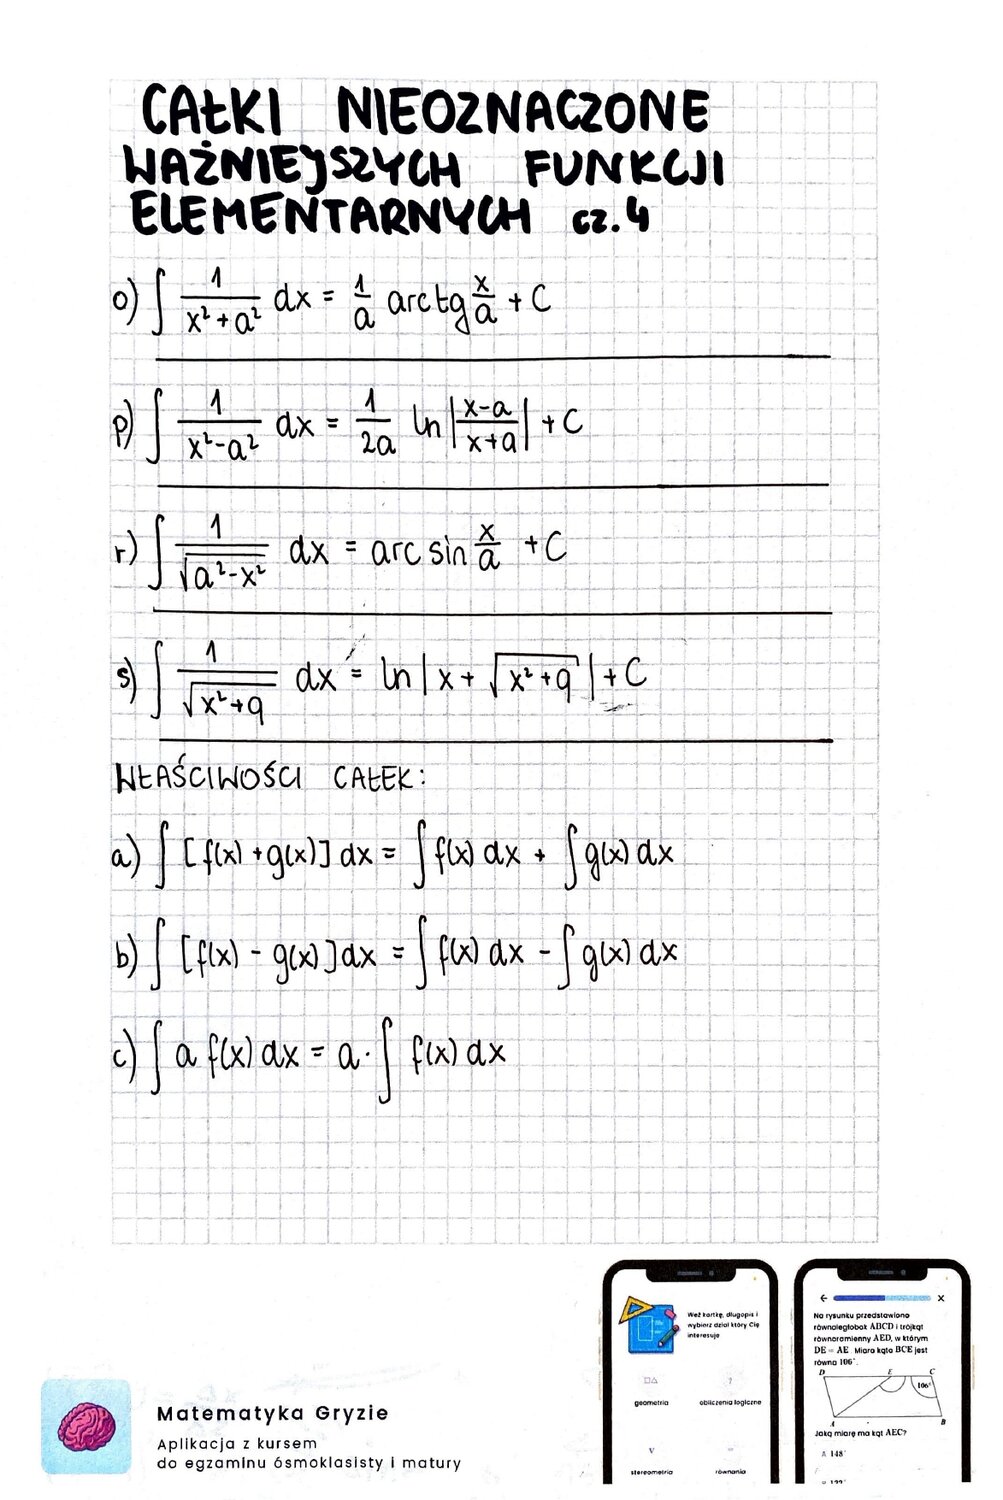 CAŁKI NIEOZNACZONE
WAŻNIEJSZYCH FUNKCJI
ELEMENTARNYCH cz.4
o) ∫ 1/(x²+a²) dx = 1/a arctg x/a + C
p) ∫ 1/(x²-a²) dx = 1/2a ln|(x-a)/(x+a)| + C
r) ∫ 1/√(a²-x²) dx = arc sin x/a + C
s) ∫ 1/√(x²+q) dx = ln|x + √(x²+q)| + C
WŁAŚCIWOŚCI CAŁEK:
a) ∫ [f(x) + g(x)] dx = ∫ f(x) dx + ∫ g(x) dx
b) ∫ [f(x) - g(x)] dx = ∫ f(x) dx - ∫ g(x) dx
c) ∫ a f(x) dx = a · ∫ f(x) dx
Matematyka Gryzie
Aplikacja z kursem
do egzaminu ósmoklasisty i matury
Weź kartkę, długopis i
wybierz dział który Cię
interesuje
geometria
obliczenia logiczne
stereometria
równania
← X
Na rysunku przedstawiono
równoległobok ABCD i trójkąt
równoramienny AED, w którym
DE = AE Miara kąta BCE jest
równa 106°.
D E C
106°
A B
Jaką miarę ma kąt AEC?
A 148°